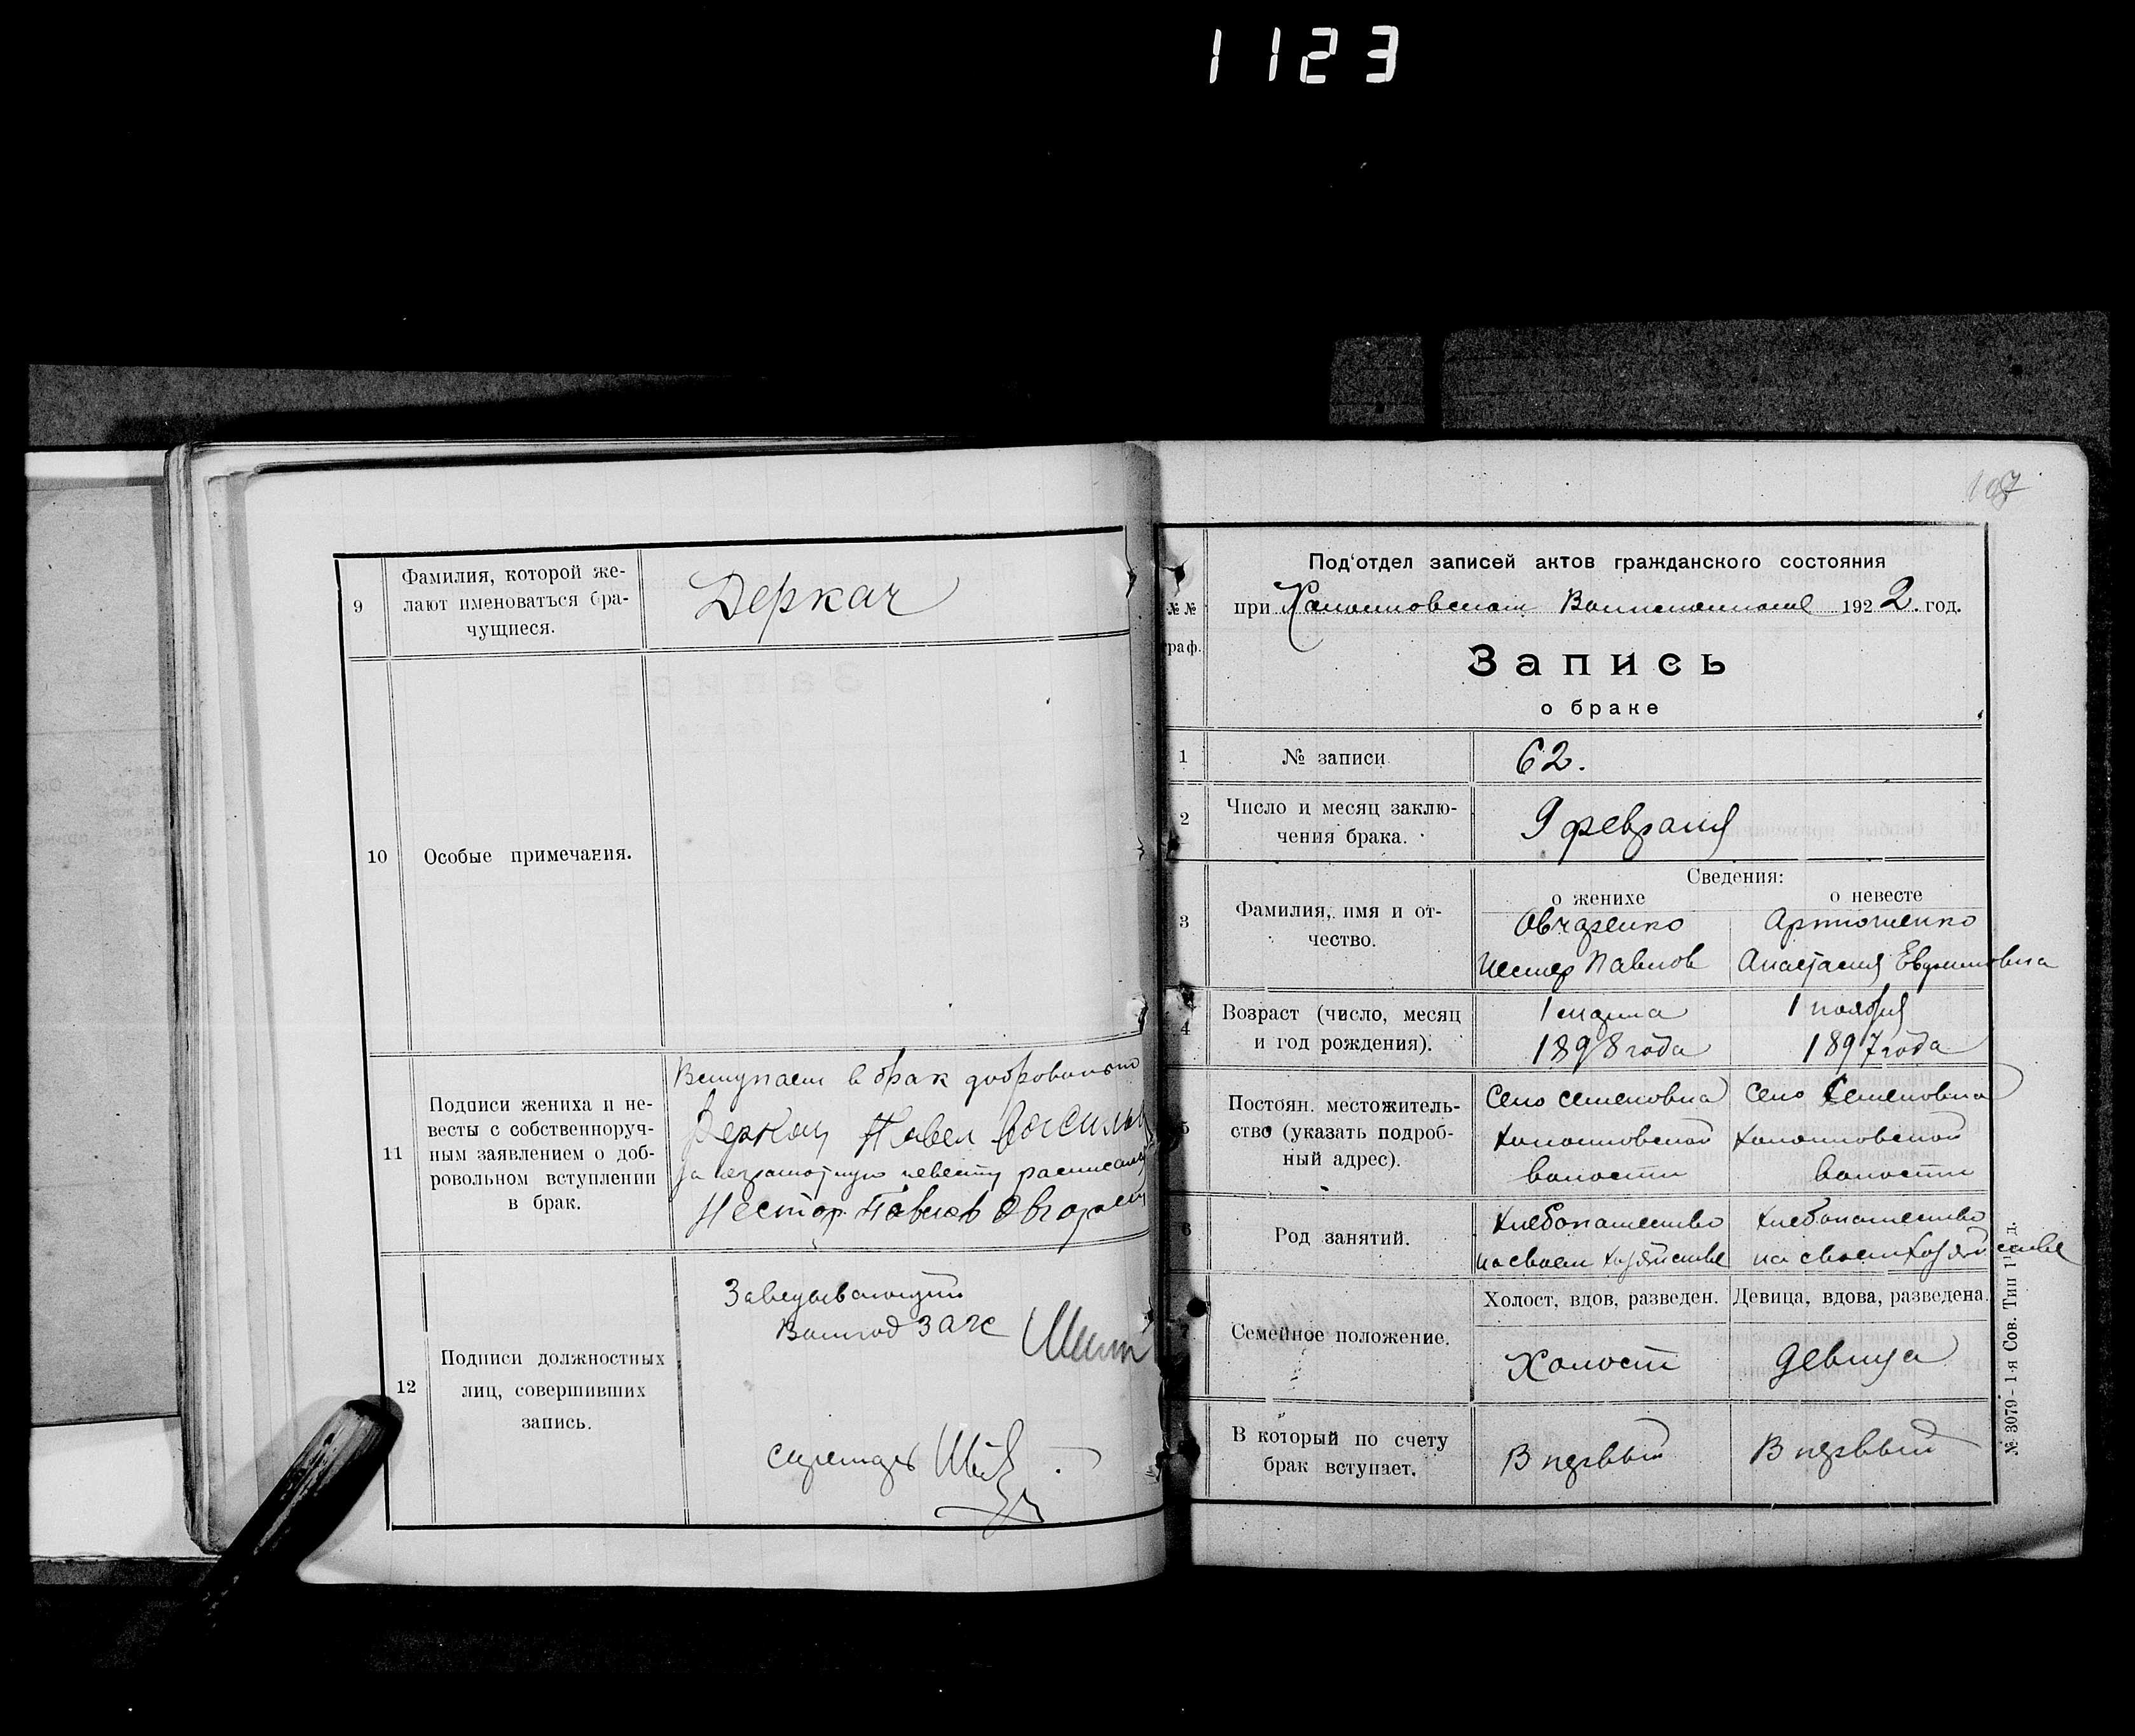 1123
9
Фамилия, которой же-
лают именоваться бра-
чущиеся.
Деркач
10
Особые примечания.
11
Подписи жениха и не-
весты с собственноруч-
ным заявлением о доб-
ровольном вступлении
в брак.
Вступаем в брак добровольно
Деркач Павел Василь
за неграмотную невесту расписался
Нестор Павлов Овчарен
12
Подписи должностных
лиц, совершивших
запись.
Заведывающий
ЗАГС
секретарь
107
№№
граф.
Под'отдел записей актов гражданского состояния
при 1922 год.
Запись
о браке
1
№ записи
62.
2
Число и месяц заклю-
чения брака.
9 февраля
3
Фамилия, имя и от-
чество.
Сведения:
о женихе
о невесте
Овчаренко
Нестер Павлов
Артюшенко
Анастасия Евдокимовна
4
Возраст (число, месяц
и год рождения).
1 марта
1898 года
1 ноября
1897 года
5
Постоян. местожитель-
ство (указать подроб-
ный адрес).
Село Семеновка
волости
Село Семеновка
волости
6
Род занятий.
Хлебопашество
на своем хозяйстве
Хлебопашество
на своем хозяйстве
7
Семейное положение.
Холост, вдов, разведен.
Девица, вдова, разведена.
Холост
Девица
В который по счету
брак вступает.
В первый
В первый
№ 3079 - 1-я Сов. Тип